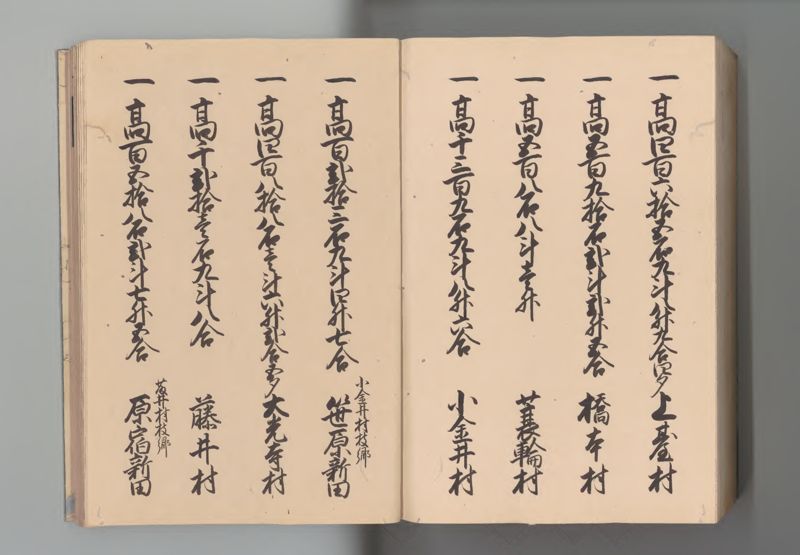 一高四百六拾五石九斗八升九合四夕 上臺村
一高五百九拾石弐斗弐升五合 橋本村
一高五百八石八斗壱升 蓑輪村
一高千三百九石九斗八升六合 小金井村
一高百弐拾三石九斗四升七合 小金井村枝郷 笹原新田
一高四百八拾八石壱斗六升弐合五夕 大光寺村
一高千弐拾壱石九斗八合 藤井村
一高百五拾八石弐斗七升五合 藤井村枝郷 原宿新田